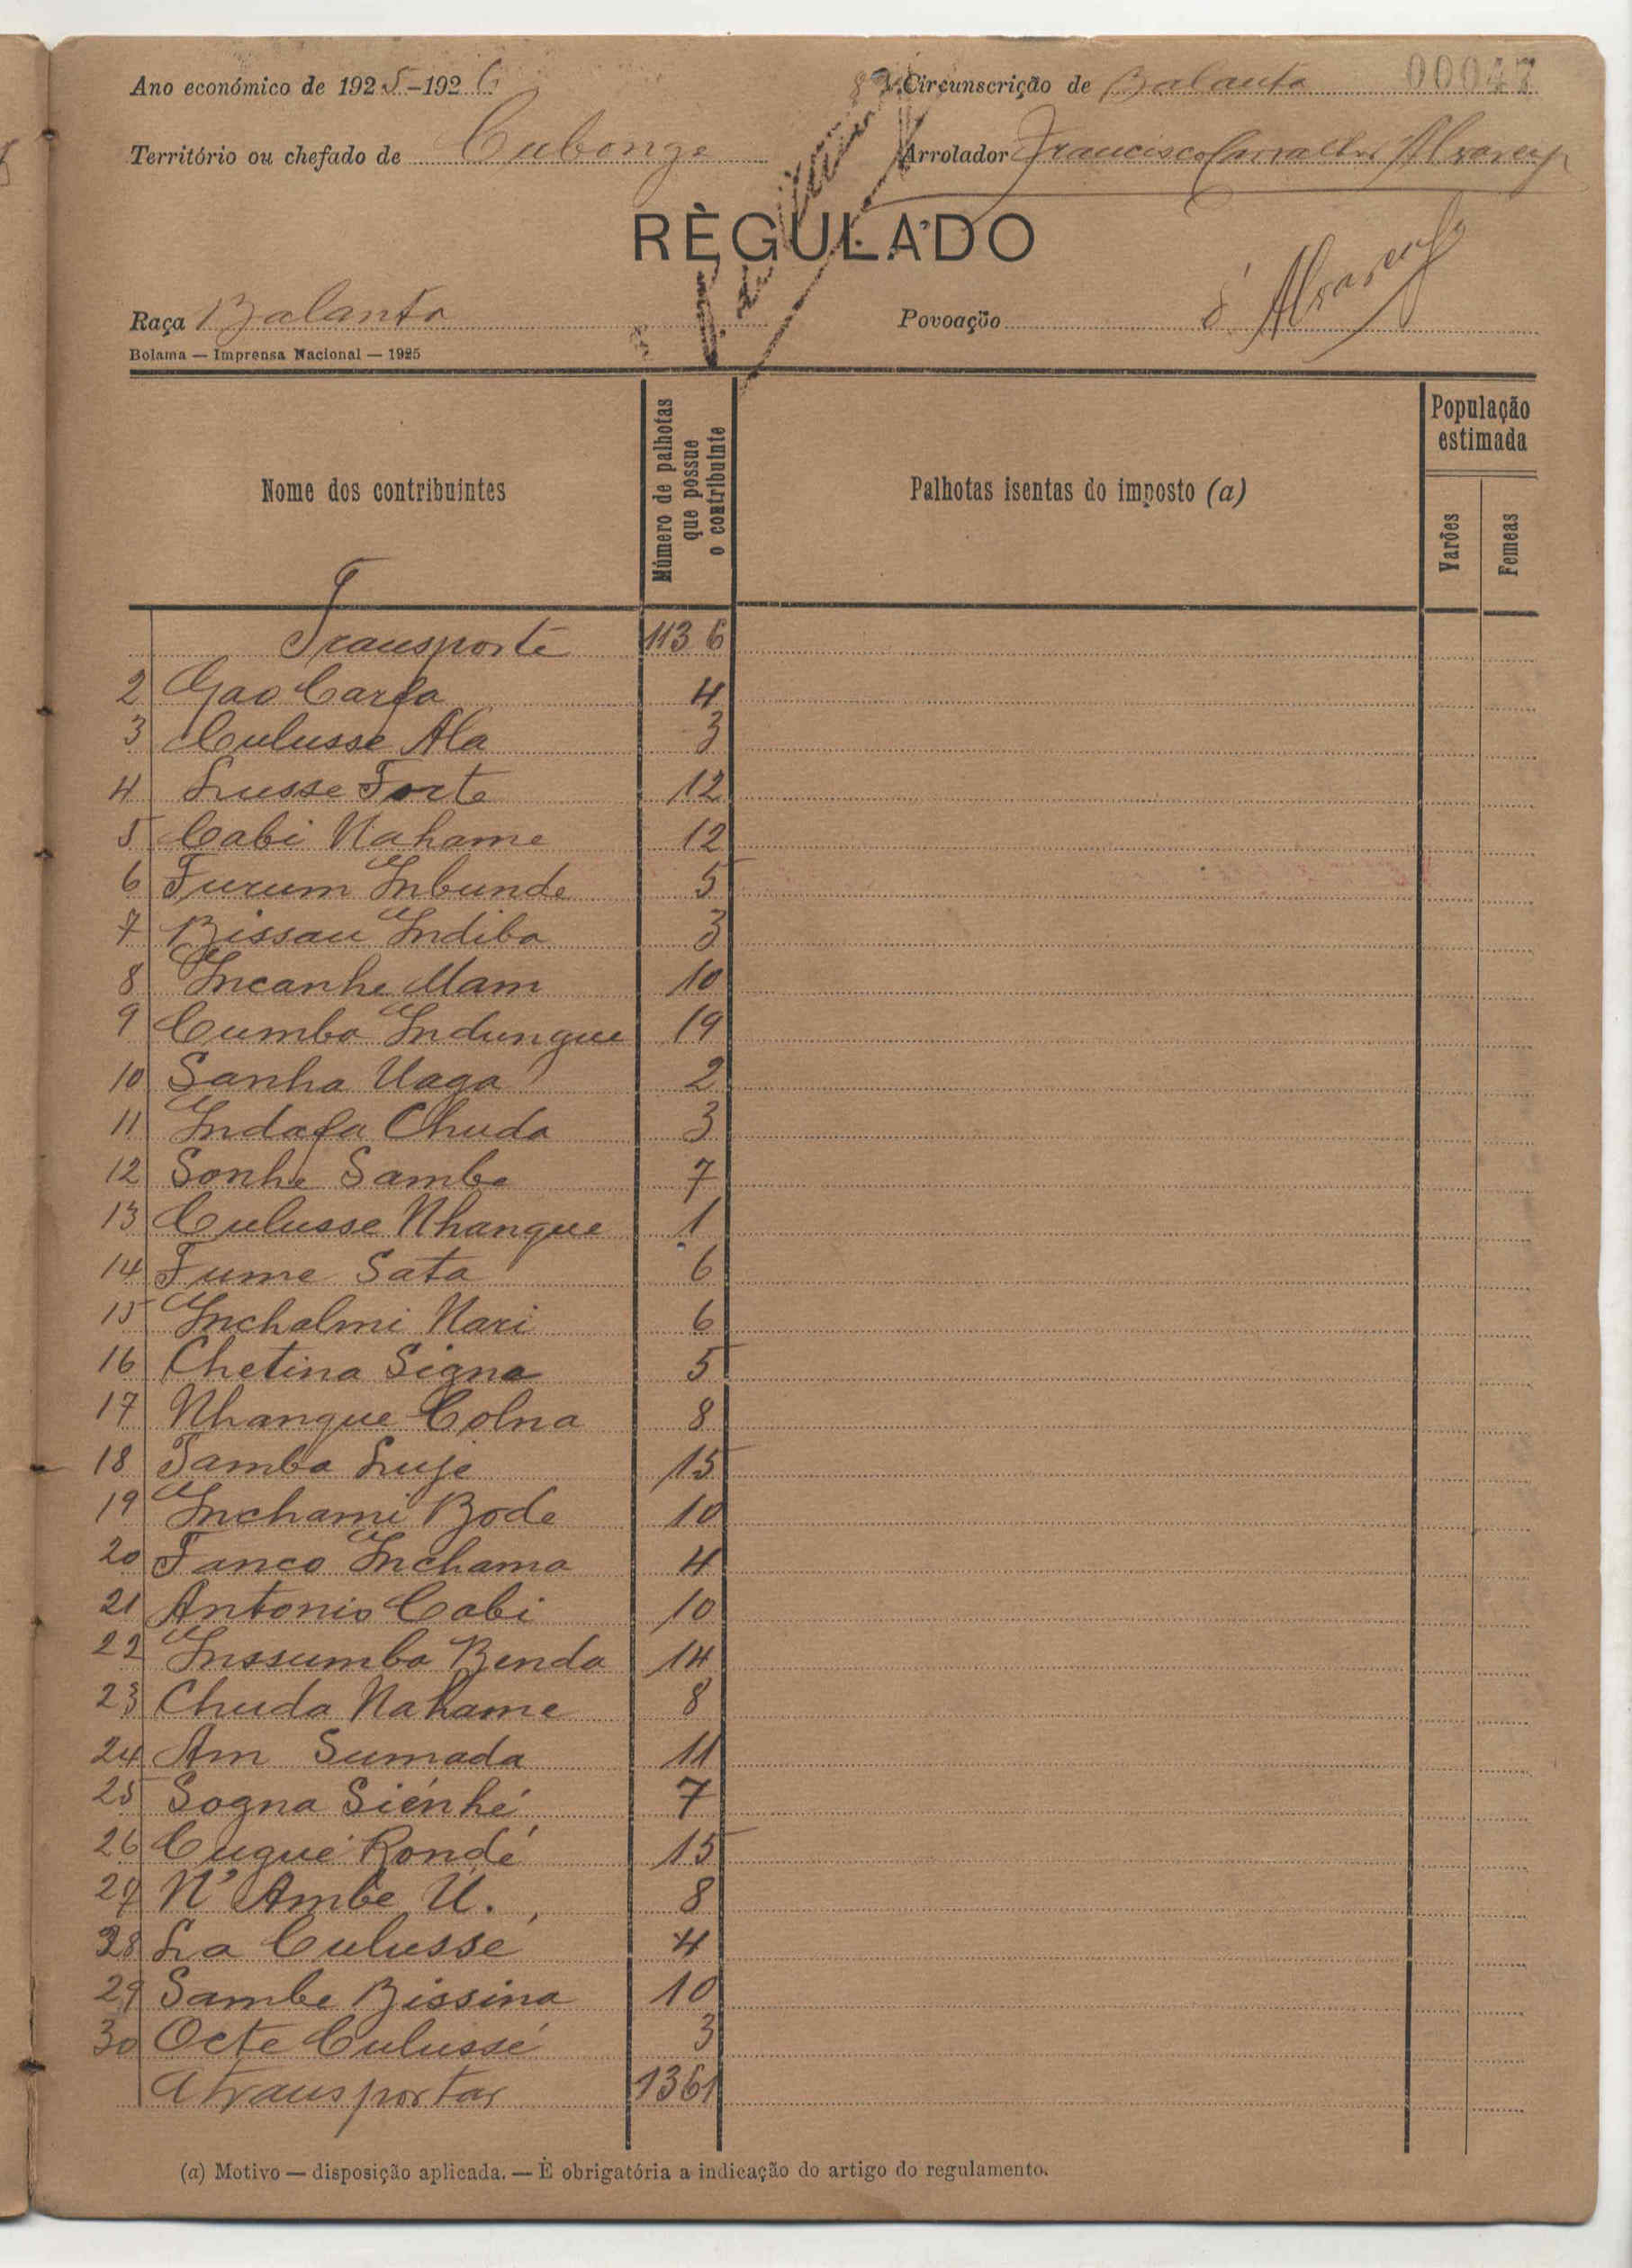 00047
Ano económico de 1925-1926 Circunscrição de Balanta
Território ou chefado de Cubonge Arrolador Francisco Carvalho Alvarenga
RÈGULADO
Raça Balanta Povoação
Bolama — Imprensa Nacional — 1925
Nome dos contribuintes
Número de palhotas que possue o contribuinte
Palhotas isentas do imposto (a)
População estimada
Varões
Femeas
Transporte 1136
2 Gao Carfa 4
3 Culusse Ala 3
4 Lusse Forte 12
5 Cabi Nahame 12
6 Furum Inbunde 5
7 Bissau Indiba 3
8 Incanhe Mam 10
9 Cumba Indungue 19
10 Sanha Uaga 2
11 Indafa Chuda 3
12 Sonhe Sambe 7
13 Culusse Nhangue 1
14 Fume Sata 6
15 Inchalmi Nari 6
16 Chetina Signa 5
17 Nhangue Colna 8
18 Tamba Luje 15
19 Inchami Bode 10
20 Fanco Inchama 4
21 Antonio Cabi 10
22 Inssumba Benda 14
23 Chuda Nahame 8
24 Am Sumada 11
25 Sogna Siénhé 7
26 Cugué Rondé 15
27 N'Ambe U. 8
28 La Culussé 4
29 Sambe Bissina 10
30 Octe Culussé 3
A transportar 1361
(a) Motivo — disposição aplicada. — È obrigatória a indicação do artigo do regulamento.